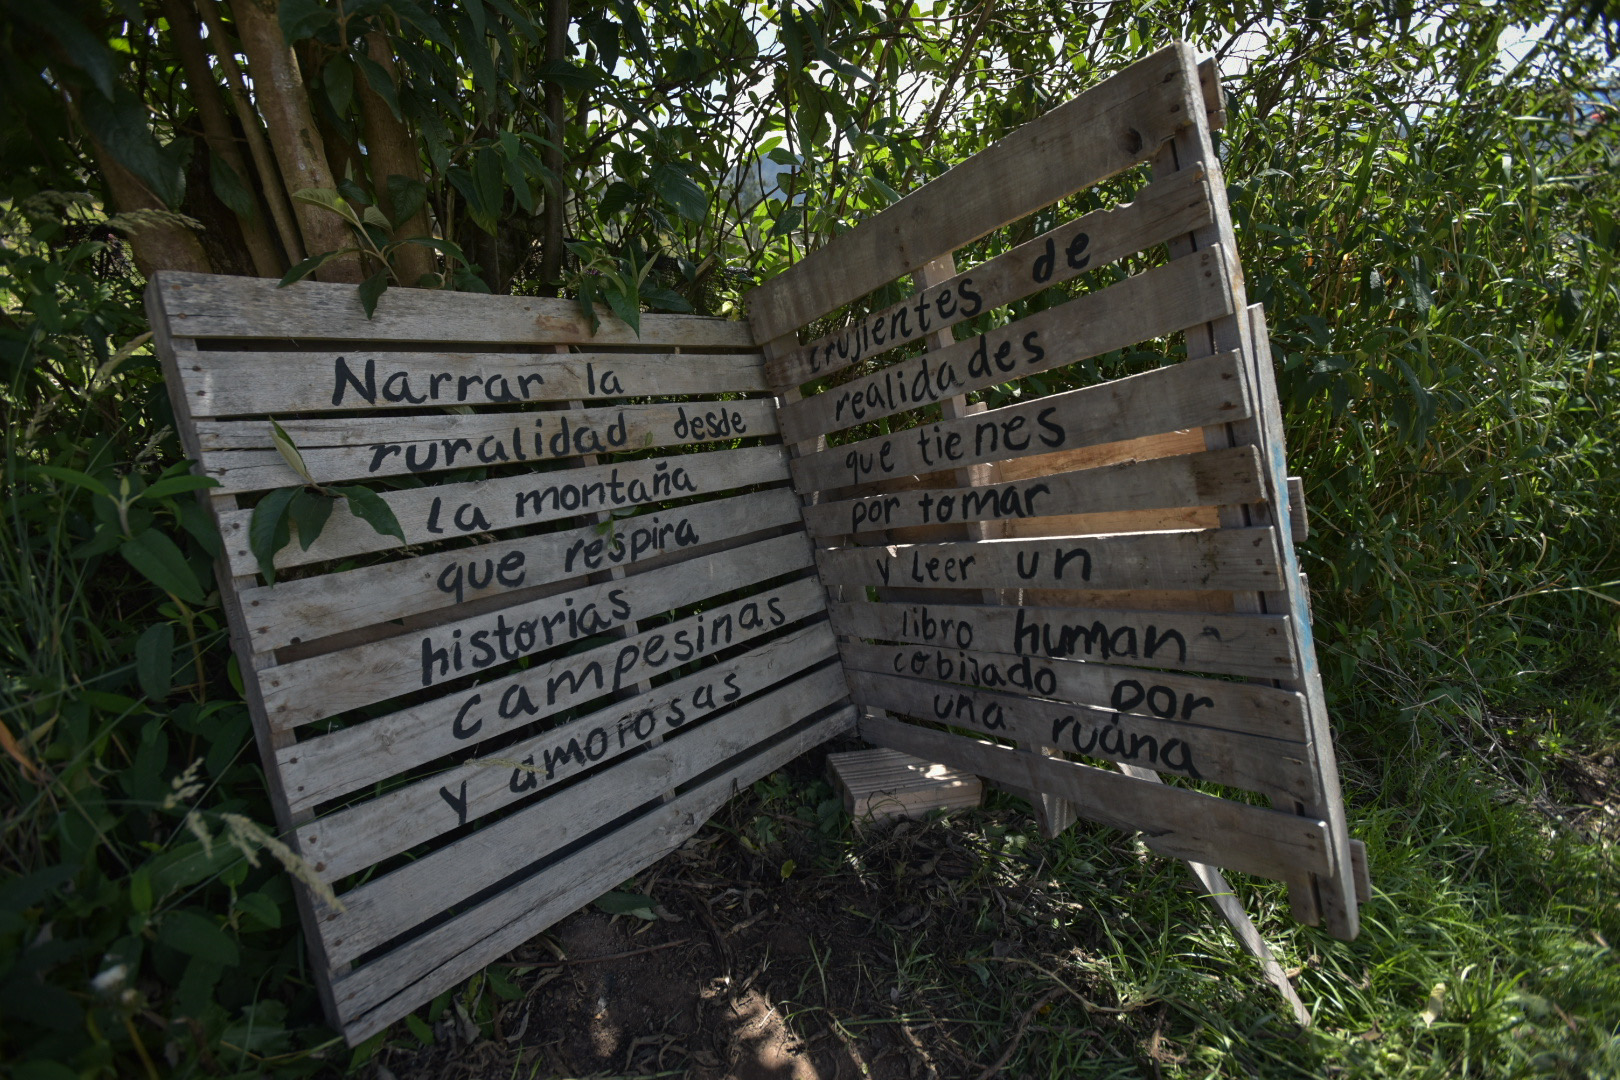 Narrar la
ruralidad desde
la montaña
que respira
historias
campesinas
y amorosas
crujientes de
realidades
que tienes
por tomar
y leer un
libro human
cobijado por
una ruana